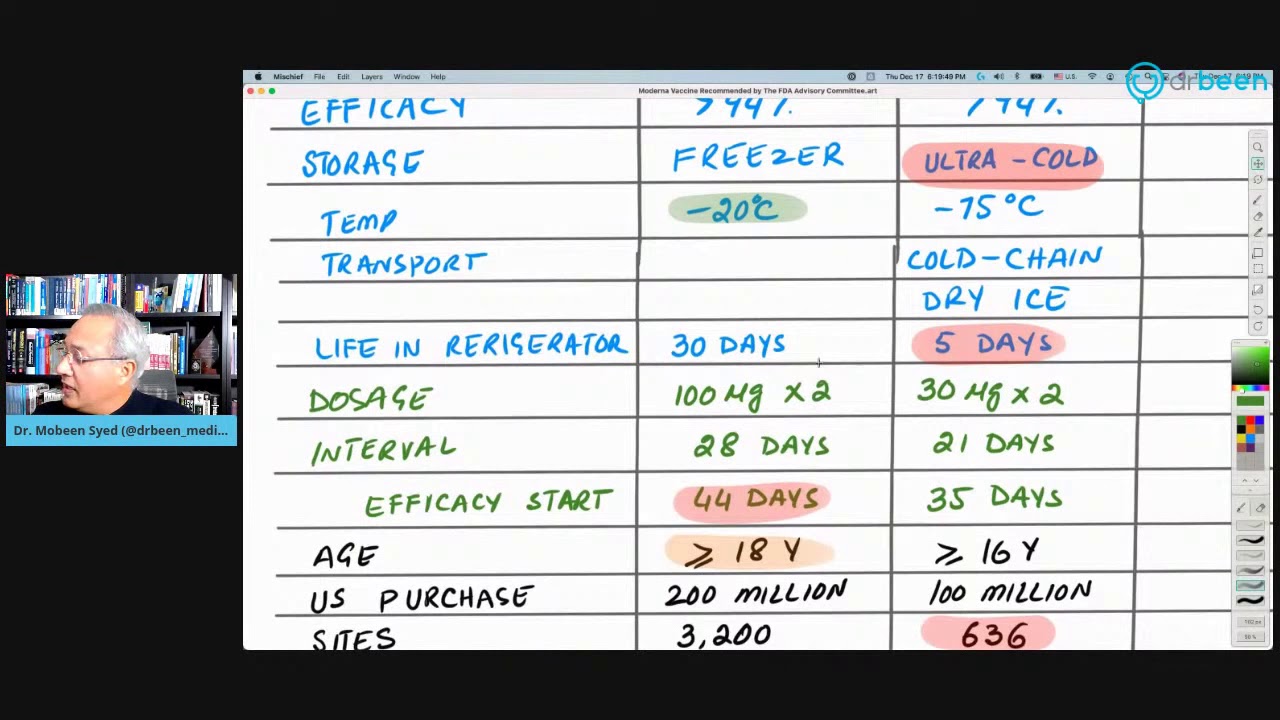 Mischief File Edit Layers Window Help Thu Dec 17 6:19:49 PM U.S.
drbeen
Moderna Vaccine Recommended by The FDA Advisory Committee.art
EFFICACY >94%
STORAGE FREEZER ULTRA-COLD
TEMP -20°C -75°C
TRANSPORT COLD-CHAIN
DRY ICE
LIFE IN RERIGERATOR 30 DAYS 5 DAYS
DOSAGE 100 Mg x 2 30 Mg x 2
INTERVAL 28 DAYS 21 DAYS
EFFICACY START 44 DAYS 35 DAYS
AGE ⩾ 18 Y ⩾ 16 Y
US PURCHASE 200 MILLION 100 MILLION
SITES 3,200 636
Dr. Mobeen Syed (@drbeen_medi...